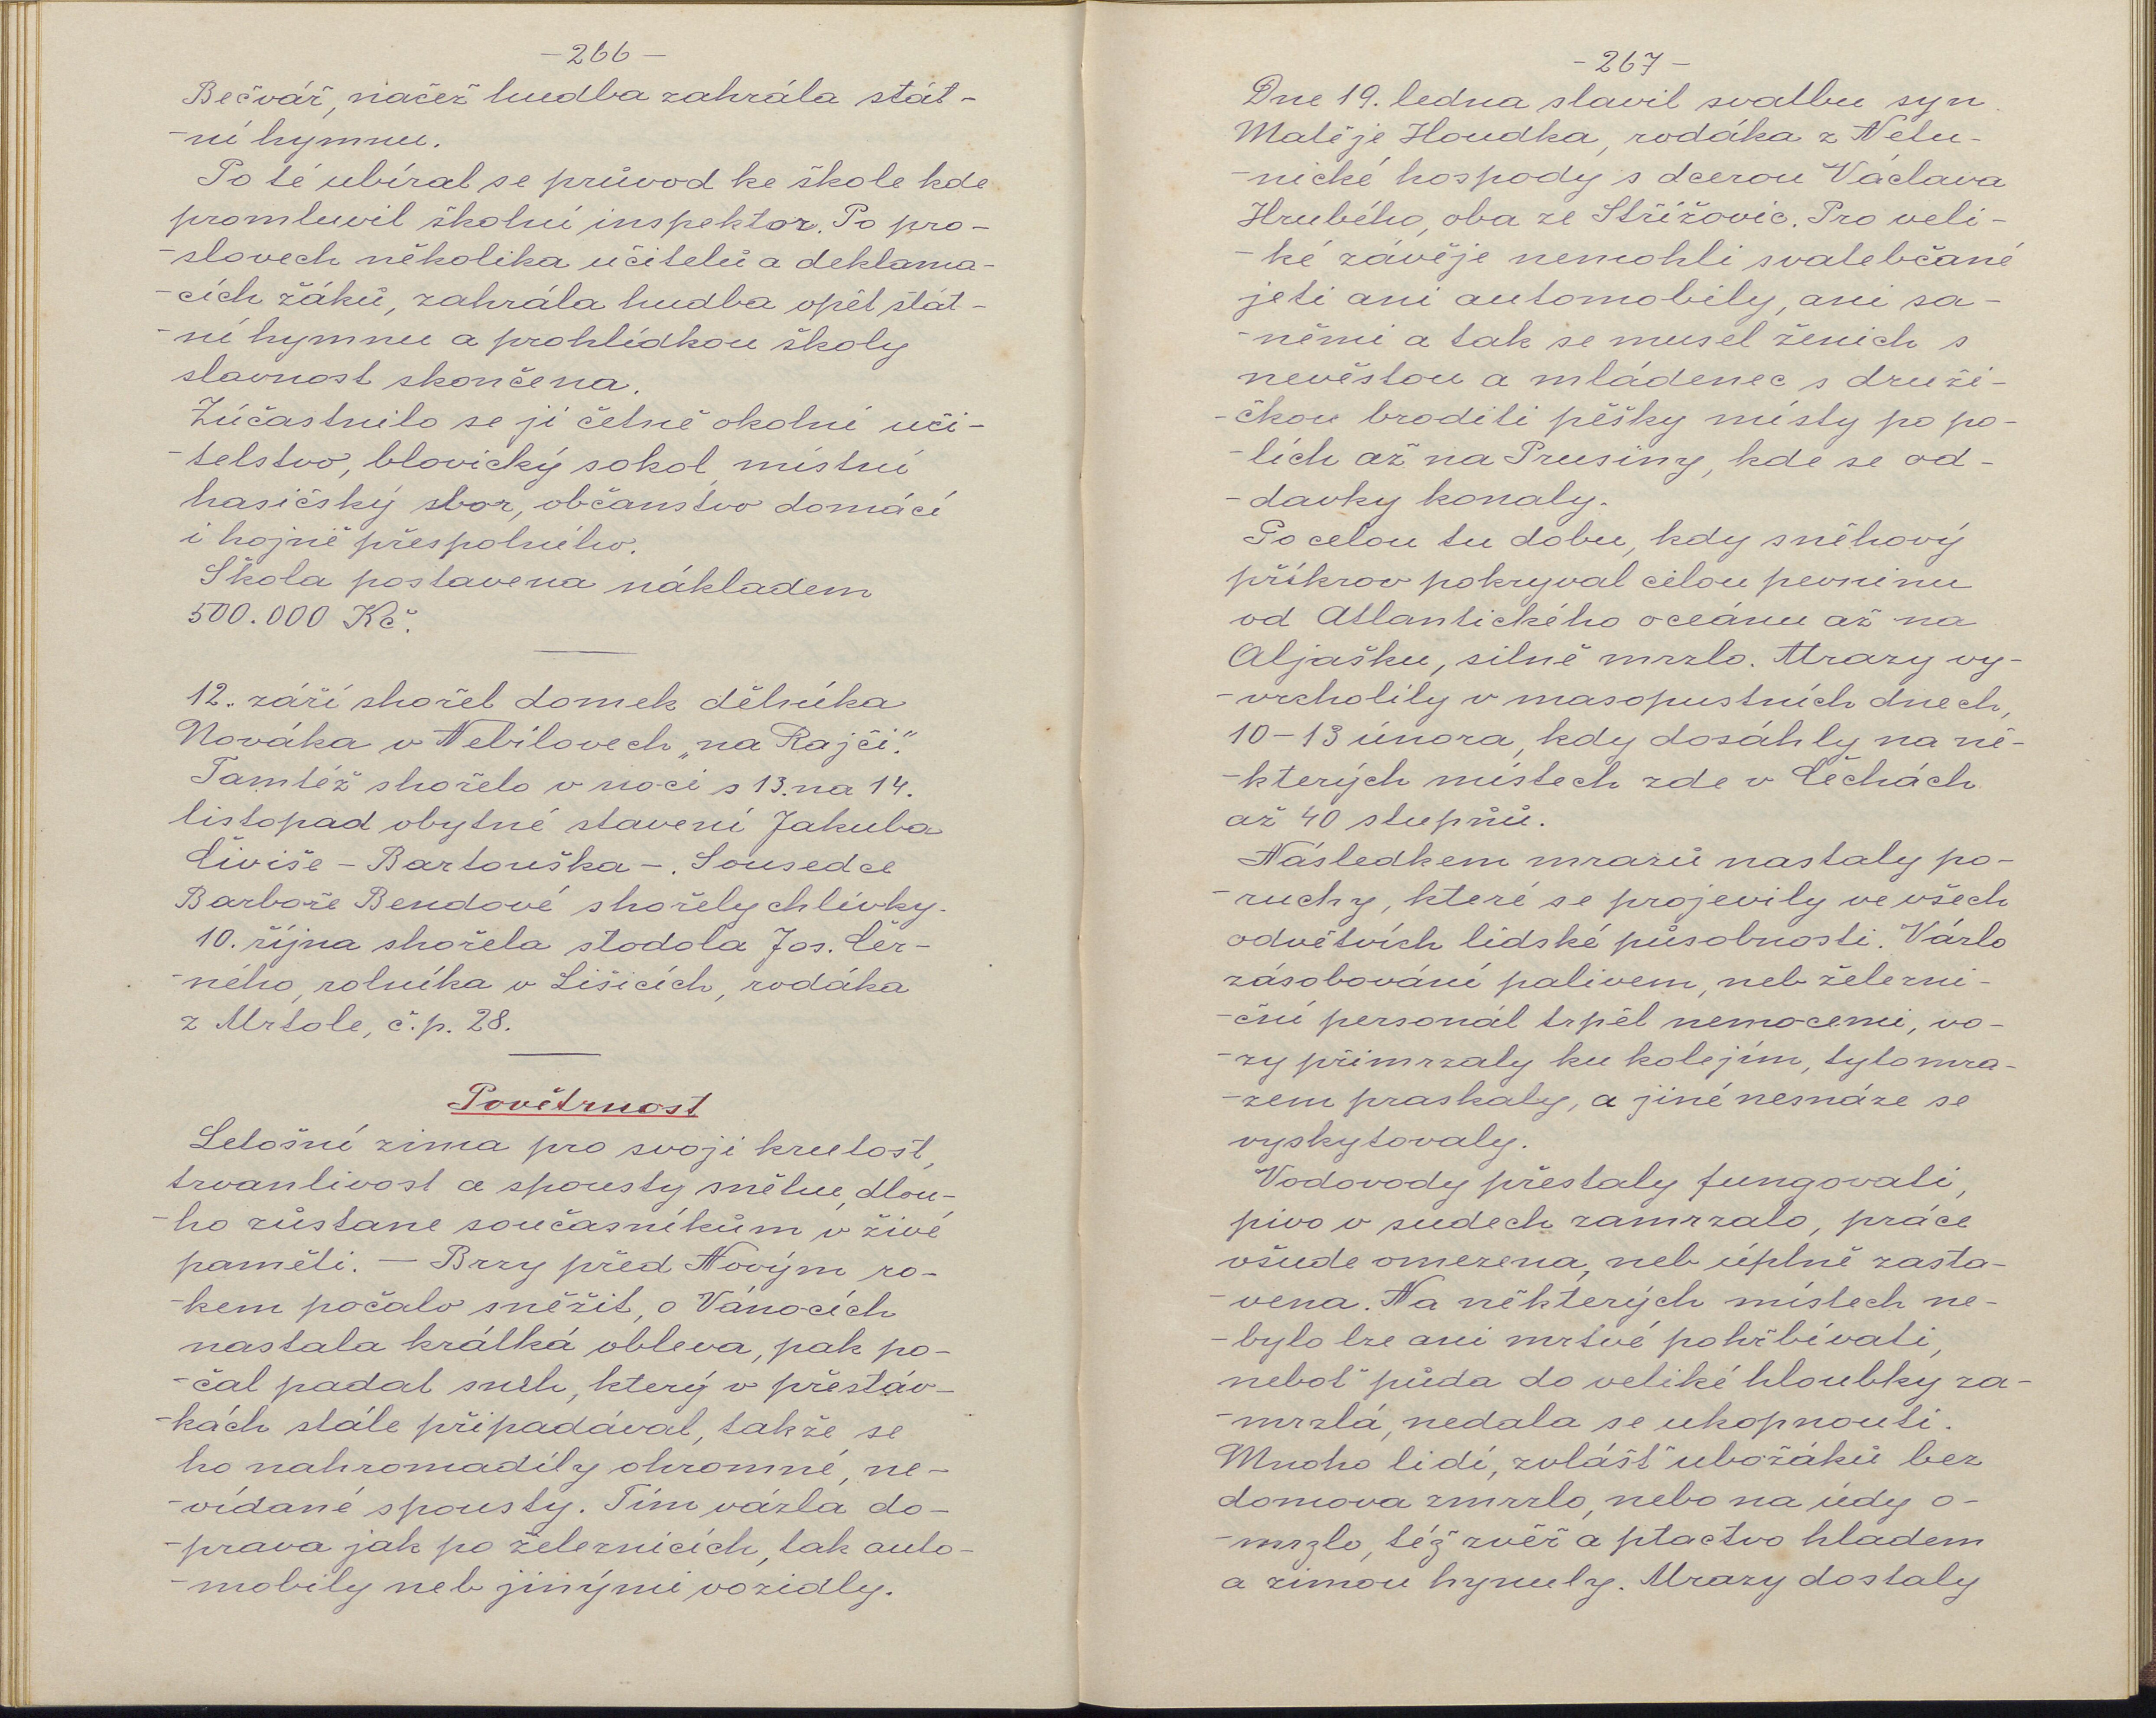 -266-
Bečvář, načež hudba zahrála stát-
-ní hymnu.
Po té ubíral se průvod ke škole kde
promluvil školní inspektor. Po pro-
-slovech několika učitelů a deklama-
-cích žáků, zahrála hudba opět stát-
-ní hymnu a prohlídkou školy
slavnost skončena.
Zúčastnilo se jí četně okolní uči-
-telstvo, blovický sokol, místní
hasičský sbor, občanstvo domácí
i hojně přespolního.
Škola postavena nákladem
500.000 Kč.
12. září shořel domek dělníka
Nováka v Nebílovech „na Rajčí“.
Tamtéž shořelo v noci s 13. na 14.
listopad obytné stavení Jakuba
Čiviše - Bartouška -. Sousedce
Barboře Bendové shořely chlívky.
10. října shořela stodola Jos. Čer-
-ného, rolníka v Lišicích, rodáka
z Mrtole, č.p. 28.
Povětrnost
Letošní zima pro svoji krutost,
trvanlivost a spousty sněhu, dlou-
-ho zůstane současníkům v živé
paměti. — Brzy před Novým ro-
-kem počalo sněžit, o Vánocích
nastala krátká obleva, pak po-
-čal padat sníh, který v přestáv-
-kách stále připadával, takže se
ho nahromadily ohromné, ne-
-vídané spousty. Tím vázla do-
-prava jak po železnicích, tak auto-
-mobily neb jinými vozidly.
-267-
Dne 19. ledna slavil svatbu syn
Matěje Houdka, rodáka z Netu-
-nické hospody s dcerou Václava
Hrubého, oba ze Střížovic. Pro veli-
-ké závěje nemohli svatebčané
jeti ani automobily, ani sa-
-němi a tak se musel ženich s
nevěstou a mládenec s druži-
-čkou broditi pěšky místy po po-
-lích až na Prusiny, kde se od-
-davky konaly.
Po celou tu dobu, kdy sněhový
příkrov pokrýval celou pevninu
od Atlantického oceánu až na
Aljašku, silně mrzlo. Mrazy vy-
-vrcholily v masopustních dnech,
10-13 února, kdy dosáhly na ně-
-kterých místech zde v Čechách
až 40 stupňů.
Následkem mrazů nastaly po-
-ruchy, které se projevily ve všech
odvětvích lidské působnosti. Vázlo
zásobování palivem, neb železni-
-ční personál trpěl nemocemi, vo-
-zy přimrzaly ku kolejím, tyto mra-
-zem praskaly, a jiné nesnáze se
vyskytovaly.
Vodovody přestaly fungovati,
pivo v sudech zamrzalo, práce
všude omezena, neb úplně zasta-
-vena. Na některých místech ne-
-bylo lze ani mrtvé pohřbívati,
neboť půda do veliké hloubky za-
-mrzlá, nedala se ukopnouti.
Mnoho lidí, zvlášť ubožáků bez
domova zmrzlo, nebo na údy o-
-mrzlo, též zvěř a ptactvo hladem
a zimou hynuly. Mrazy dostaly